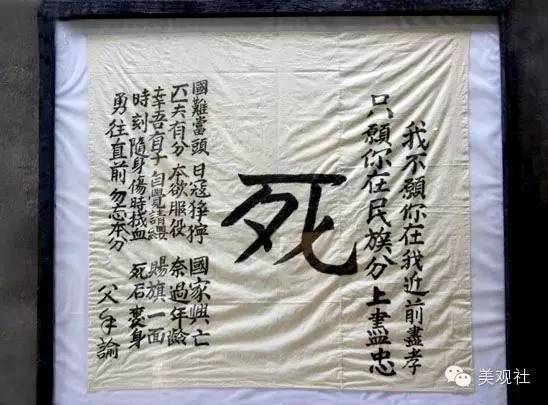 我不願你在我近前盡孝
只願你在民族分上盡忠
死
國難當頭 日寇猙獰 國家興亡
匹夫有分 本欲服役 奈過年齡
幸吾有子 自覺請纓 賜旗一面
時刻隨身 傷時拭血 死后裹身
勇往直前 勿忘本分
父手諭
美观社